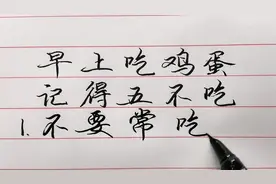 早上吃鸡蛋
记得五不吃
1.不要常吃